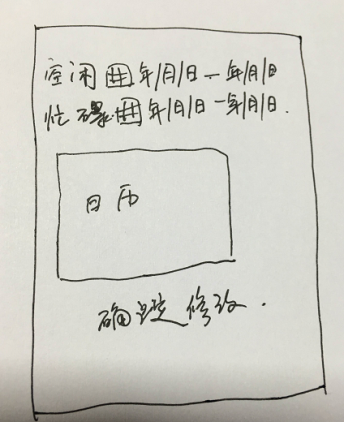 空闲 年/月/日 — 年/月/日
忙碌 年/月/日 — 年/月/日.
日历
确定修改.